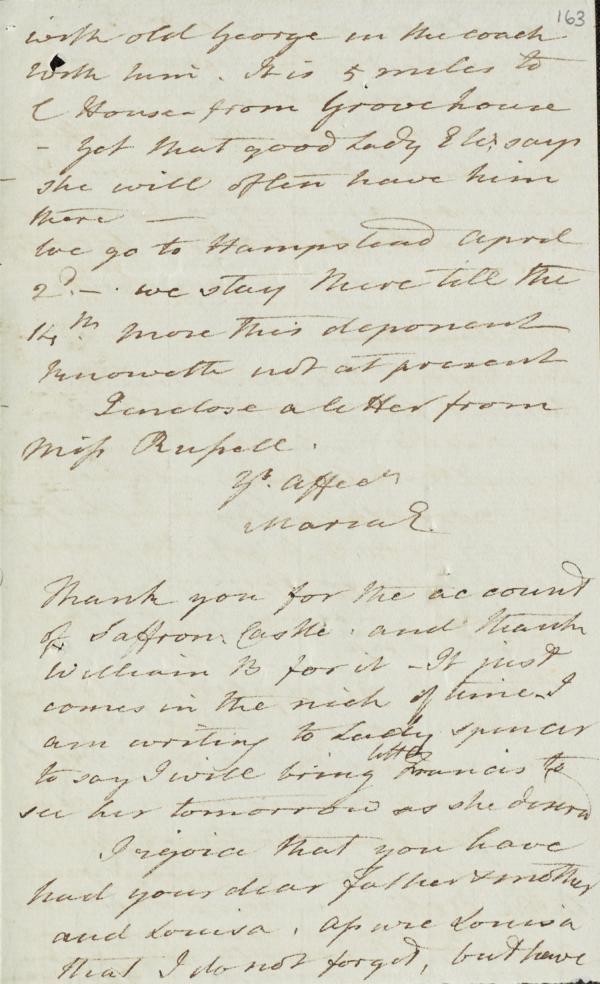 163
with old George in the coach
with him. It is 5 miles to
C House from Grove house
- Yet that good Lady Eliz says
she will often have him
there —
We go to Hampstead April
2d. - we stay there till the
14th. more this deponent
knoweth not at present
I enclose a letter from
Miss Russell.
Yr. affect
Maria E.
Thank you for the account
of Saffron Castle. and thank
William B for it - It just
comes in the nick of time - I
am writing to Lady Spencer
to say I will bring little Francis to
see her tomorrow as she desired
I rejoice that you have
had your dear father & mother
and Louisa. Assure Louisa
that I do not forget, but have